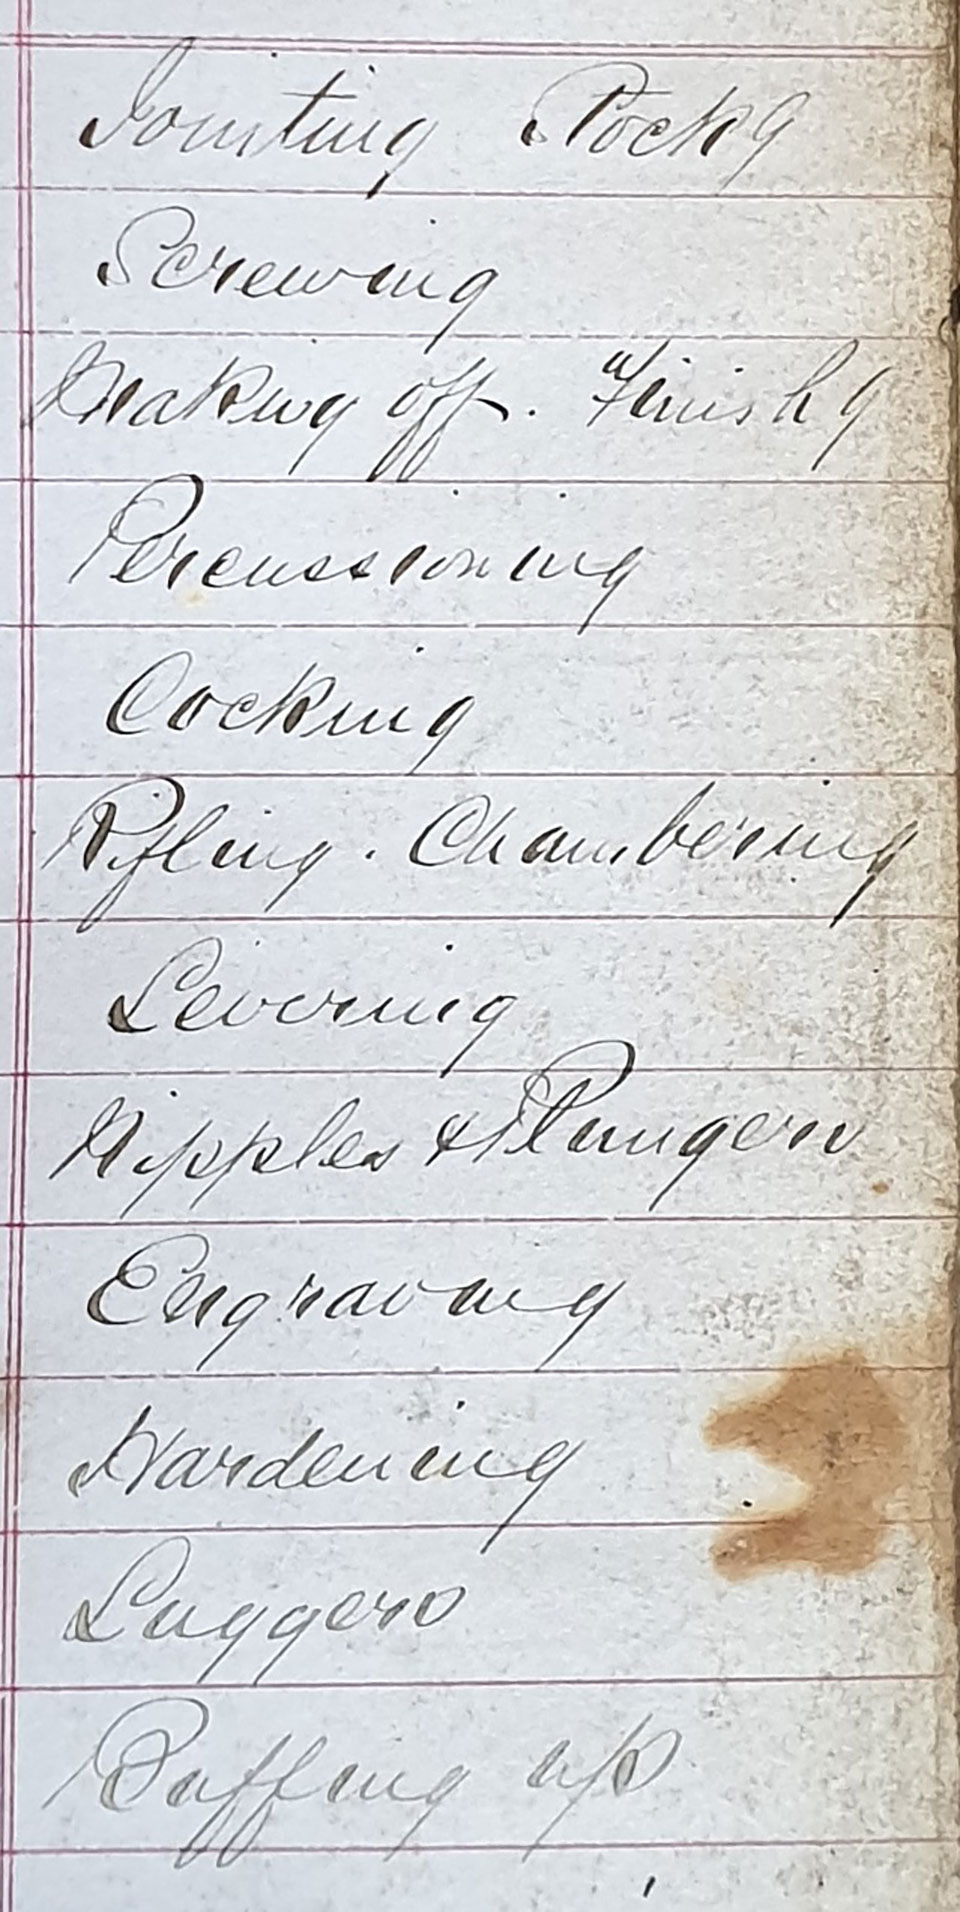 Jointing Stock'g
Screwing
Making off. Finish'g
Percussioning
Cocking
Rifling. Chambering
Levering
Nipples & Plungers
Engraving
Hardening
Luggers
Buffing up